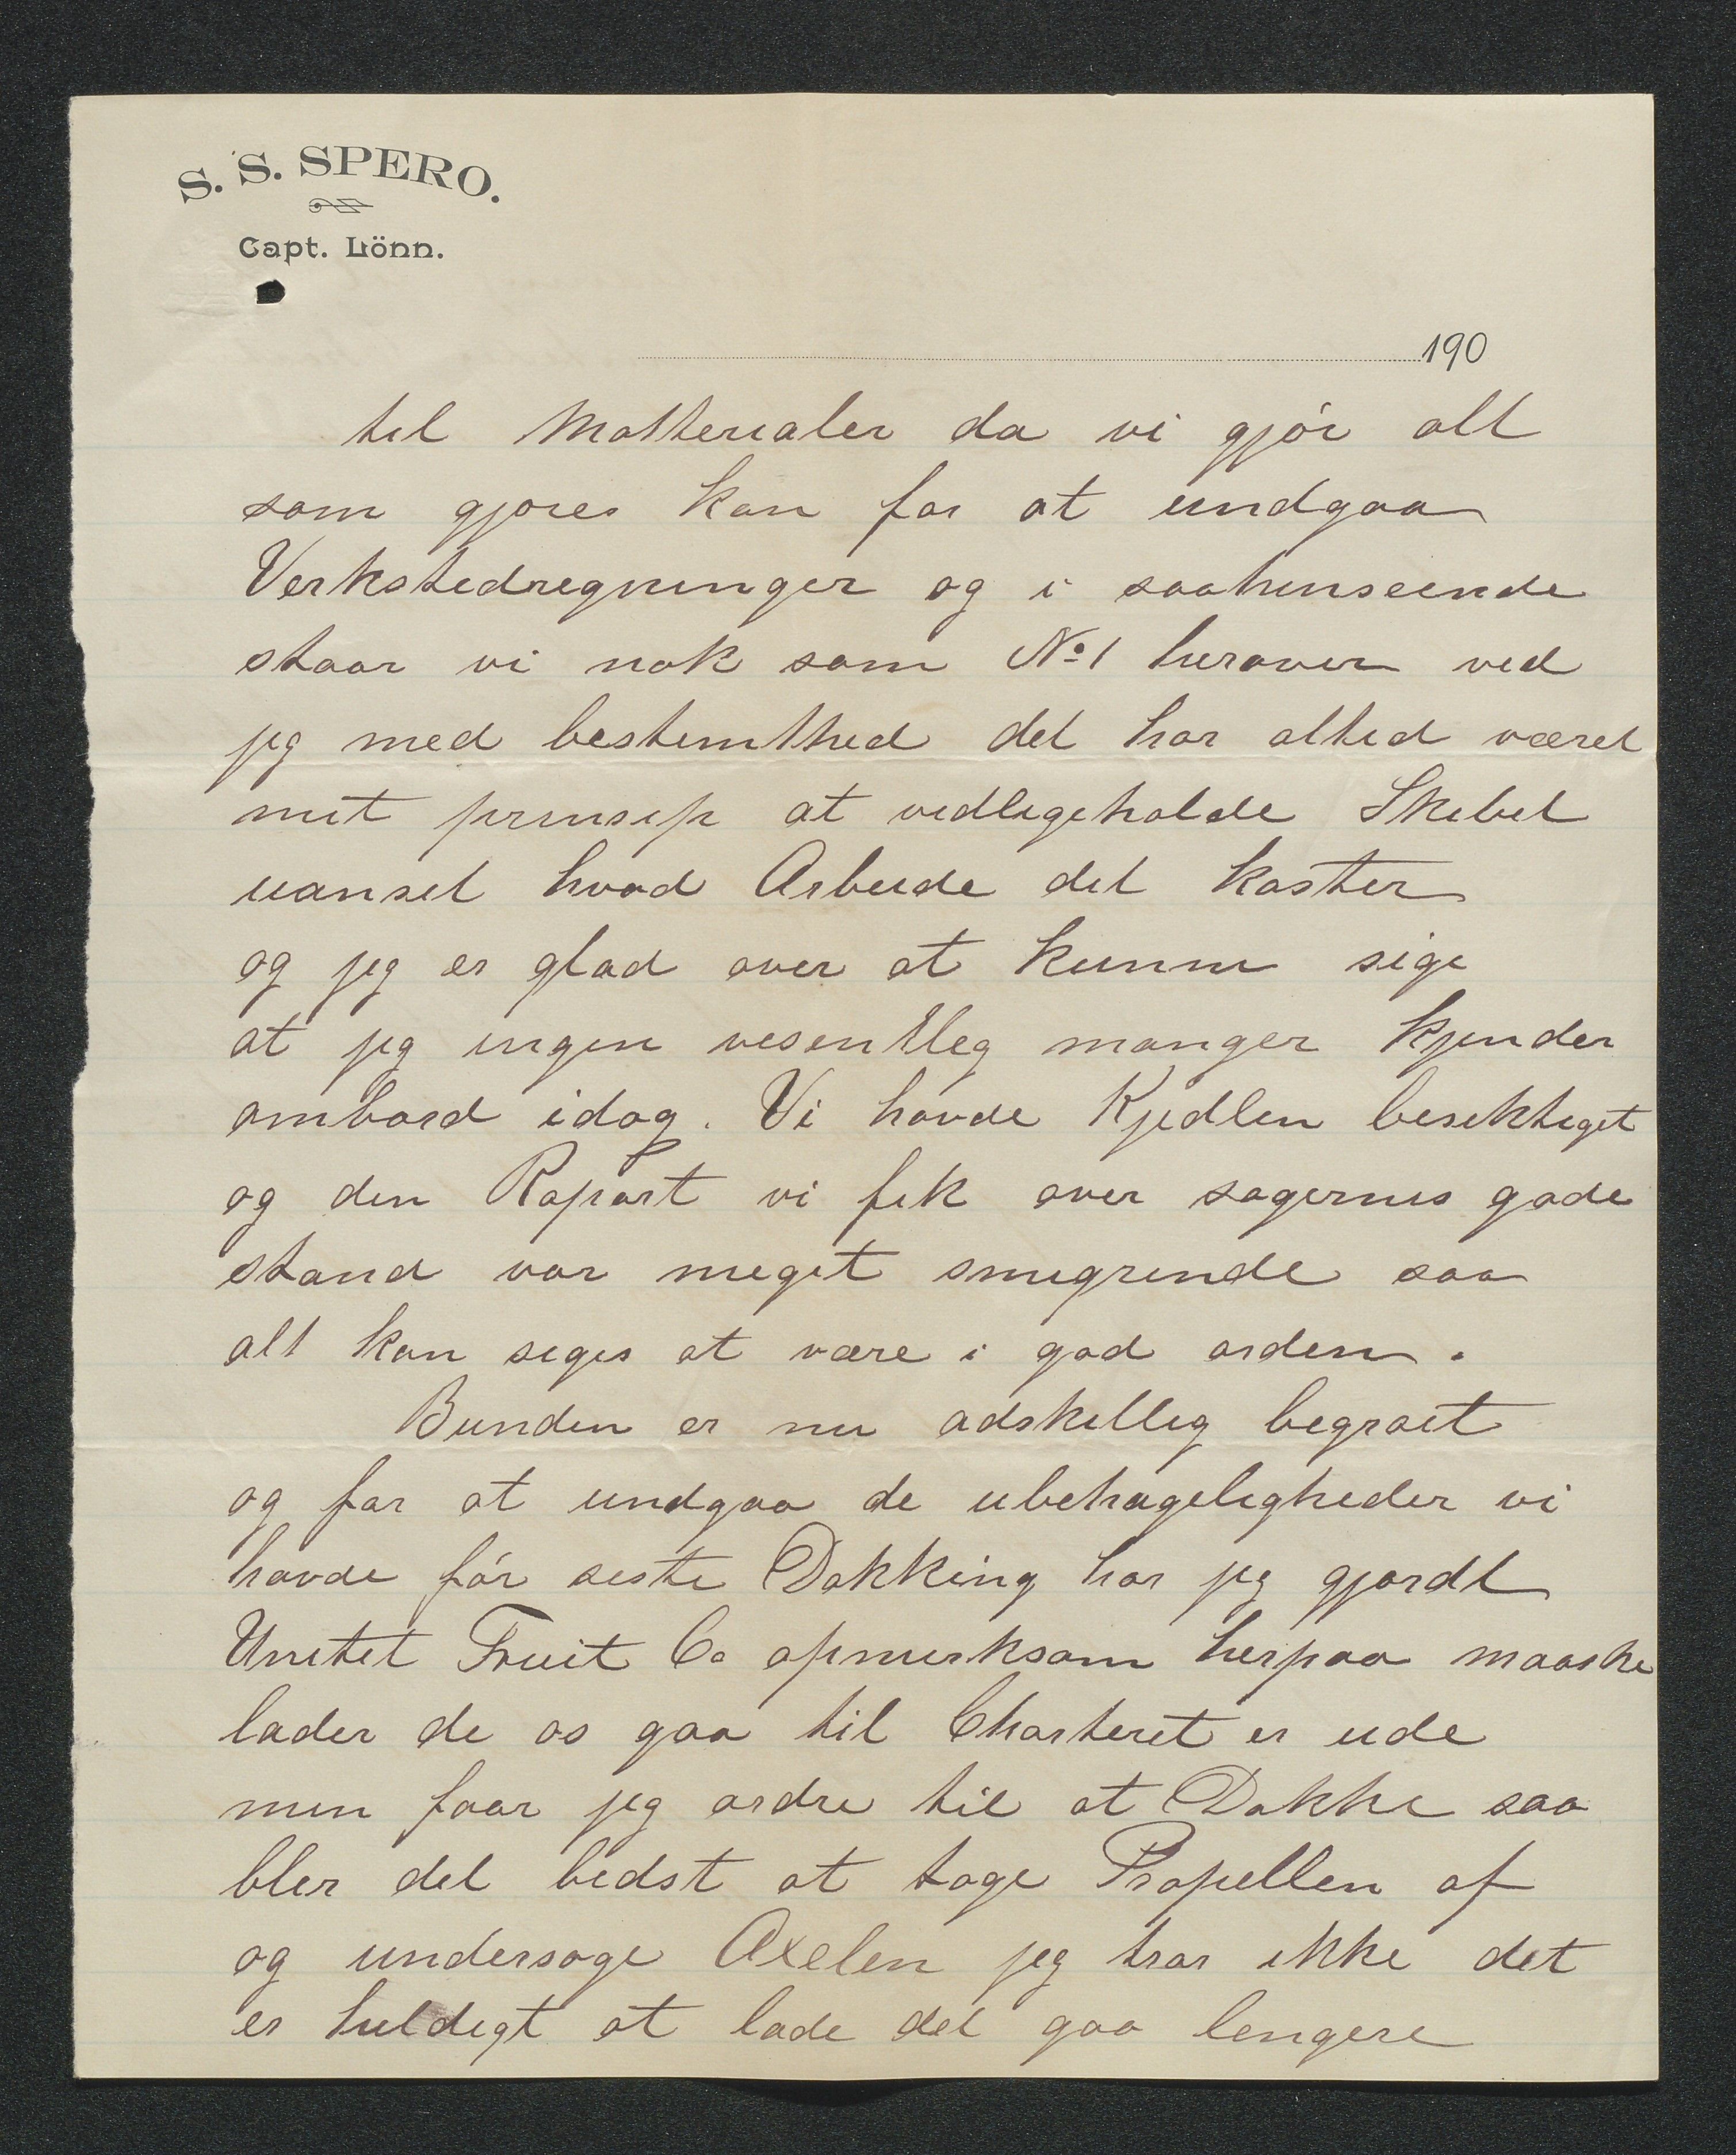 S. S. SPERO.
Capt. Lönn.
190
til Matterialer da vi gjör alt
som gjores kan for at undgaa
Verkstedregninger og i saahenseende
staar vi nok som No 1 herover ved
jeg med bestemthed det har altid været
mit prinsip at vedligeholde Skibet
uanset hvad Arbeide det koster
og jeg er glad over at kunne sige
at jeg ingen vesentleg manger kjender
ombord idag. Vi havde Kjedlen besiktiget
og den Raport vi fik over sagernes gode
stand var meget smigrende saa
alt kan siges at være i god orden.
Bunden er nu adskillig begroet
og for at undgaa de ubehageligheder vi
havde för siste Dokking har jeg gjordt
Unitet Fruit Co opmerksom herpaa maaske
lader de os gaa til Charteret er ude
men faar jeg ordre til at Dokke saa
bler det bedst at tage Propellen af
og undersøge Axelen jeg tror ikke det
er heldigt at lade det gaa lengere